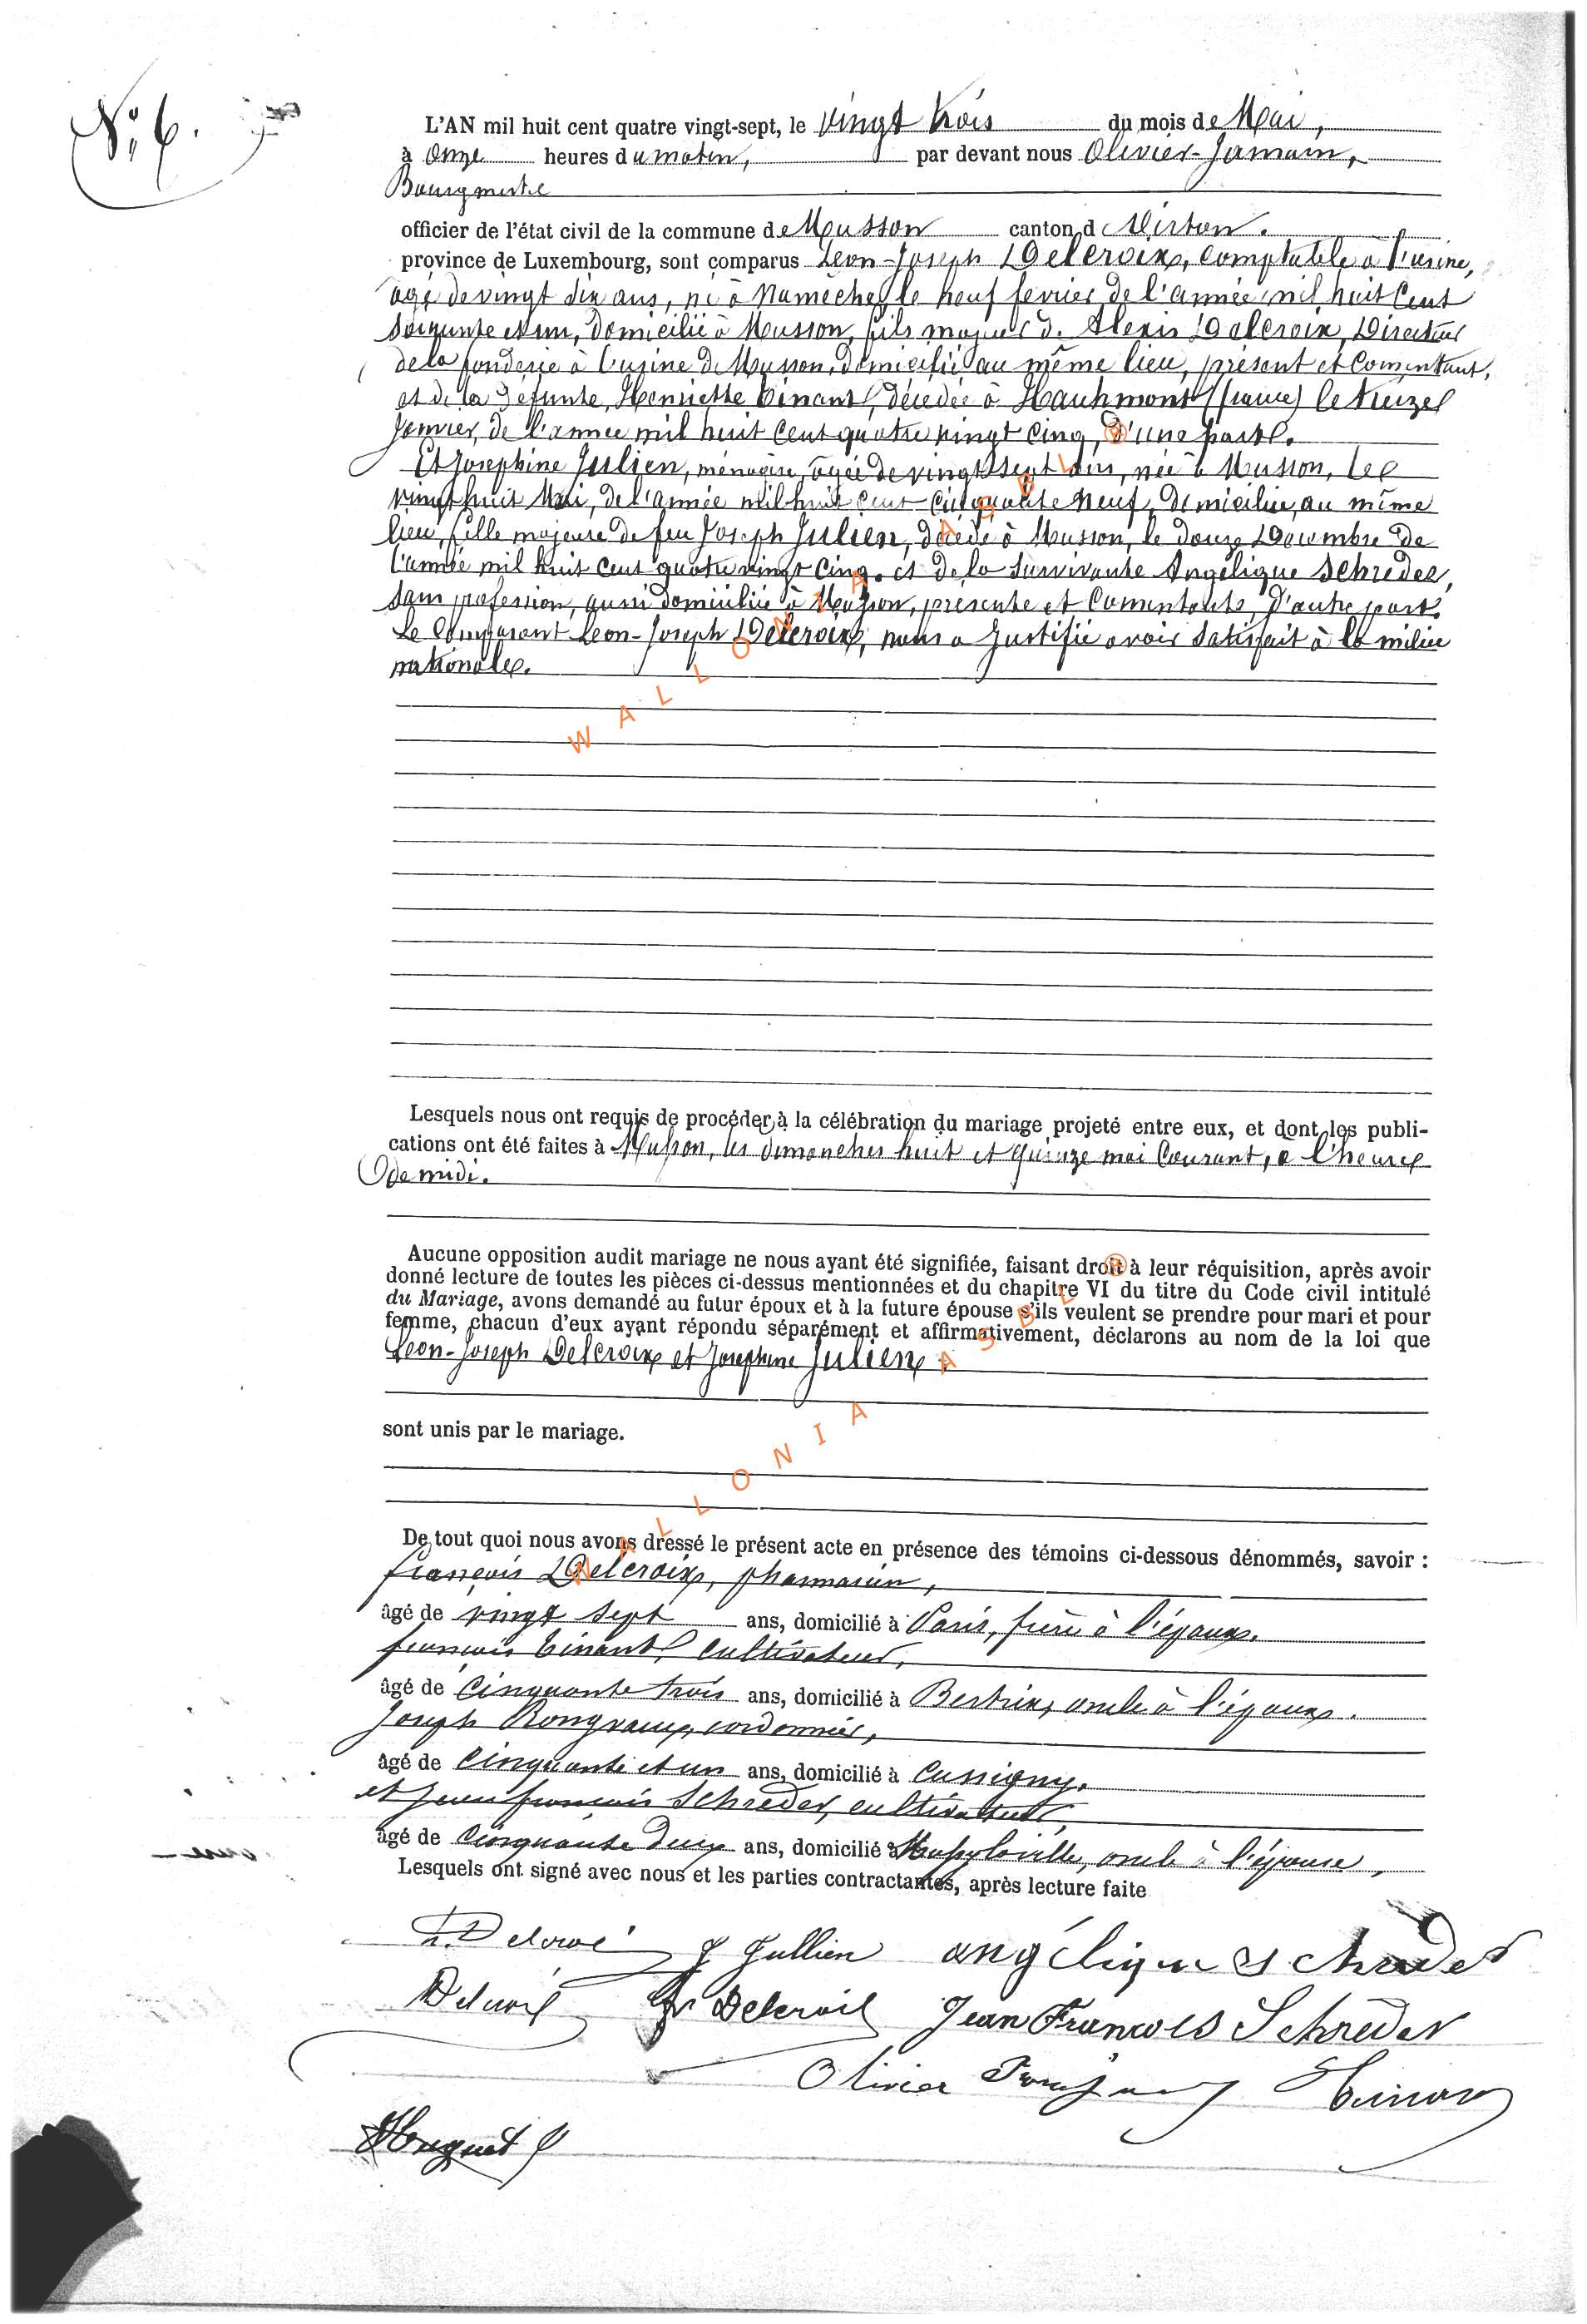 N° 6.
L'AN mil huit cent quatre vingt-sept, le vingt trois du mois de Mai,
à onze heures du matin, par devant nous Olivier-Jamain,
Bourgmestre
officier de l'état civil de la commune de Musson canton d Virton.
province de Luxembourg, sont comparus Léon-Joseph Delcroix, comptable à l'usine,
âgé de vingt six ans, né à Namèche, le neuf fevrier de l'année mil huit cent
soixante et un, domicilié à Musson, fils majeur d. Alexis Delcroix, Directeur
de la fonderie à l'usine de Musson, domicilié au même lieu, présent et consentant,
et de la défunte, Henriette Binant, décédée à Hauhmont (france) le treize
Janvier, de l'année mil huit cent quatre vingt cinq, d'une part.
Et Josephine Julien, ménagère, âgée de vingt sept ans, née à Musson, le
vingt huit Mai, de l'année mil huit cent cinquante neuf, domiciliée au même
lieu, fille majeure de feu Joseph Julien, décédé à Musson, le douze Décembre de
l'année mil huit cent quatre vingt cinq. et de la survivante Angélique Schréder,
sans profession, aussi domiciliée à Musson, présente et consentante, d'autre part.
Le comparant Léon-Joseph Delcroix, nous a justifié avoir satisfait à la milice
nationale.
WALLONIA ASBL ®
Lesquels nous ont requis de procéder à la célébration du mariage projeté entre eux, et dont les publi-
cations ont été faites à Musson, les dimanches huit et quinze mai courant, à l'heure
de midi.
Aucune opposition audit mariage ne nous ayant été signifiée, faisant droit à leur réquisition, après avoir
donné lecture de toutes les pièces ci-dessus mentionnées et du chapitre VI du titre du Code civil intitulé
du Mariage, avons demandé au futur époux et à la future épouse s'ils veulent se prendre pour mari et pour
femme, chacun d'eux ayant répondu séparément et affirmativement, déclarons au nom de la loi que
Léon-Joseph Delcroix et Josephine Julien.
sont unis par le mariage.
WALLONIA ASBL ®
De tout quoi nous avons dressé le présent acte en présence des témoins ci-dessous dénommés, savoir :
françois Delcroix, pharmacien,
âgé de vingt sept ans, domicilié à Paris, frère à l'époux.
françois Binant, cultivateur,
âgé de cinquante trois ans, domicilié à Bertrix, oncle à l'époux.
Joseph Rongvaux, cordonnier,
âgé de cinquante et un ans, domicilié à Cussigny.
et Jean françois Schréder, cultivateur,
âgé de cinquante deux ans, domicilié à Mussy la ville, oncle à l'épouse,
Lesquels ont signé avec nous et les parties contractantes, après lecture faite
L. Delcroix J Jullien angélique Schreder
Delcroix fr Delcroix Jean François Schreder
Olivier Binant